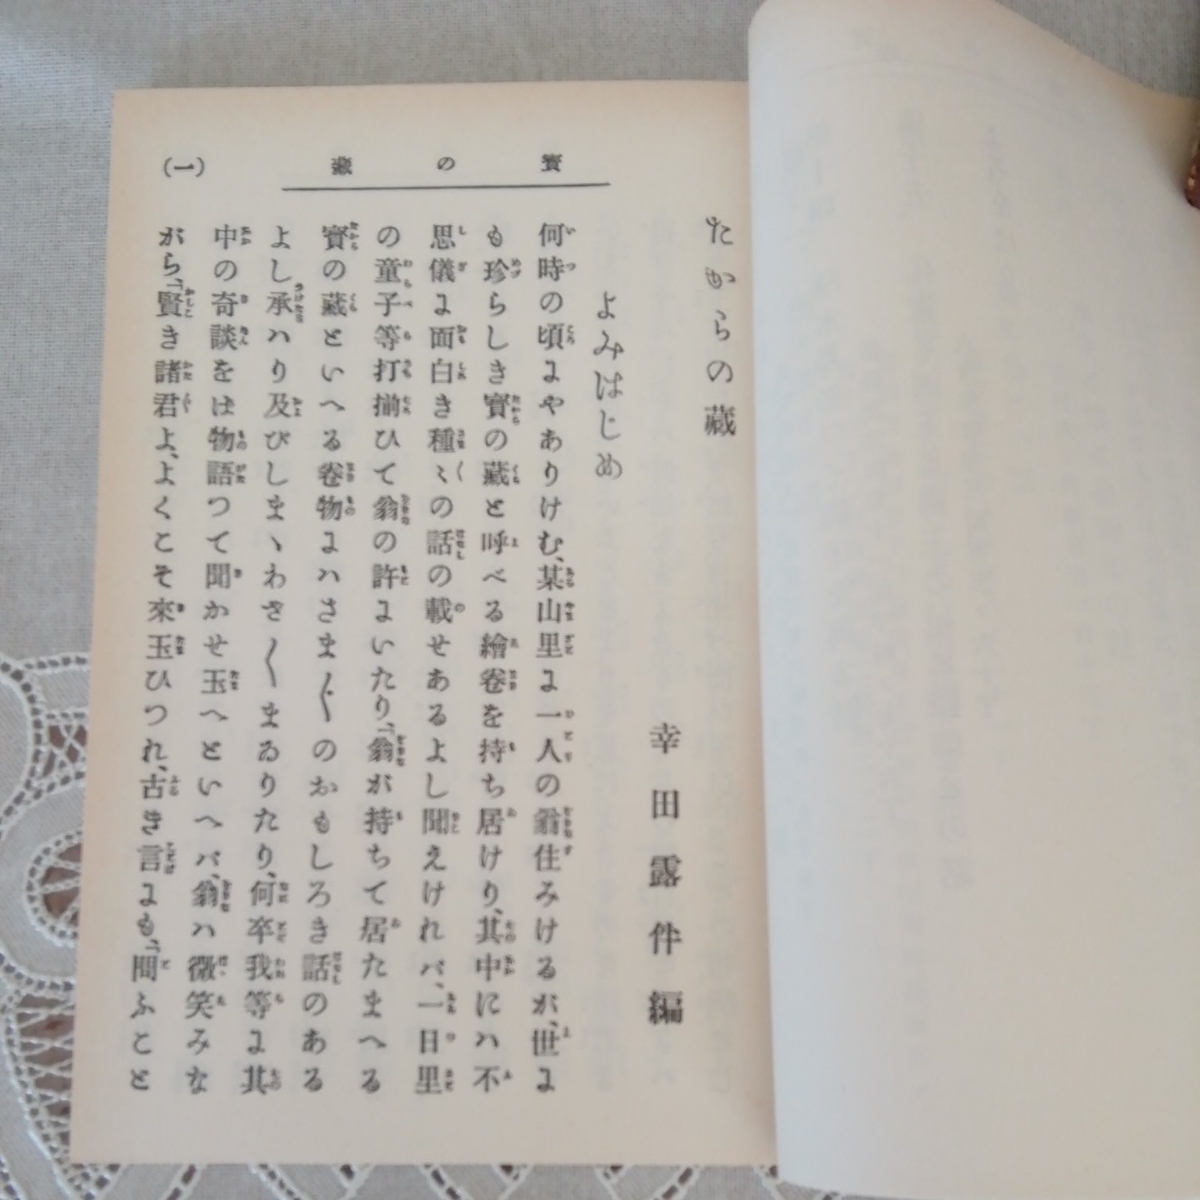 寳の藏
(一)
たからの藏
幸田露伴編
よみはじめ
何時の頃にやありけむ、某山里に一人の翁住みけるが、世に
も珍らしき寳の藏と呼べる繪卷を持ち居けり、其中にハ不
思儀に面白き種〻の話の載せあるよし聞えけれバ、一日里
の童子等打揃ひて翁の許にいたり、「翁が持ちて居たまへる
寳の藏といへる卷物にハさま〴〵のおもしろき話のある
よし承ハり及びしまゝわざ〳〵まゐりたり、何卒我等に其
中の奇談をば物語つて聞かせ玉へといへバ、翁ハ微笑みな
がら、「賢き諸君よ、よくこそ來玉ひつれ、古き言にも、「問ふこと